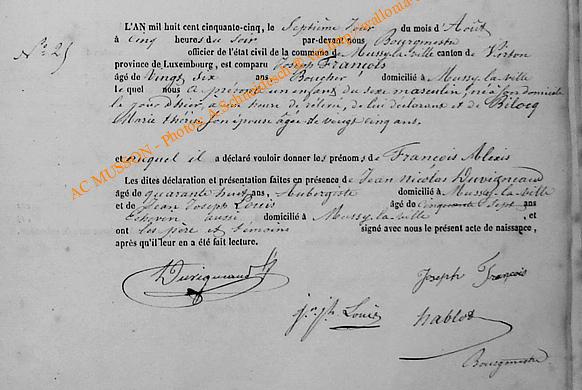 L'AN mil huit cent cinquante-cinq, le Septième Jour du mois d'Août
N° 25 à cinq heures du Soir par-devant nous Bourgmestre
officier de l'état civil de la commune de Mussy-la-ville canton de Virton
province de Luxembourg, est comparu Joseph François
âgé de Vingt Six ans Boucher domicilié à Mussy-la-ville
le quel nous a présenté un enfant du sexe masculin, né à son domicile
le jour d'hier, à une heure de relevée, de lui déclarant et de Bilocq
Marie thérèse son épouse âgée de vingt cinq ans.
et auquel il a déclaré vouloir donner les prénoms de François Alexis
Les dites déclaration et présentation faites en présence de Jean Nicolas Duvigneaud
âgé de quarante huit ans, Aubergiste domicilié à Mussy-la-ville
et de Jean Joseph Louis âgé de Cinquante Sept ans
Echevin aussi domicilié à Mussy-la-ville , et
ont les père et témoins signé avec nous le présent acte de naissance,
après qu'il leur en a été fait lecture.
Duvigneaud
Joseph François
Jn. Jh. Louis hablot
Bourgmestre
AC MUSSON - Photos A Schmidtbusch